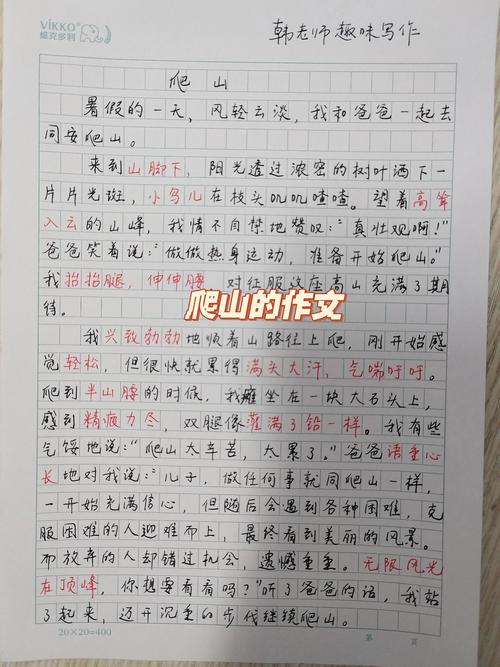 VIKKO
维克多利
韩老师趣味写作
爬山
暑假的一天,风轻云淡,我和爸爸一起去
同安爬山。
来到山脚下,阳光透过浓密的树叶洒下一
片片光斑,小鸟儿在枝头叽叽喳喳。望着高耸
入云的山峰,我情不自禁地赞叹:“真壮观啊!”
爸爸笑着说:“做做热身运动,准备开始爬山。”
我抬抬腿,伸伸腰 对征服这座高山充满了期
待。
爬山的作文
我兴致勃勃地顺着山路往上爬,刚开始感
觉轻松,但很快就累得满头大汗,气喘吁吁。
爬到半山腰的时候,我瘫坐在一块大石头上,
感到精疲力尽,双腿像灌满了铅一样。我有些
气馁地说:“爬山太辛苦,太累了。”爸爸语重心
长地对我说:“儿子,做任何事就同爬山一样,
一开始充满信心,但随后会遇到各种困难,克
服困难的人迎难而上,最终看到美丽的风景。
而放弃的人却错过机会,遗憾重重。无限风光
在顶峰,你想要看看吗?”听了爸爸的话,我站
了起来,迈开沉重的步伐继续爬山。
20×20=400
第 页